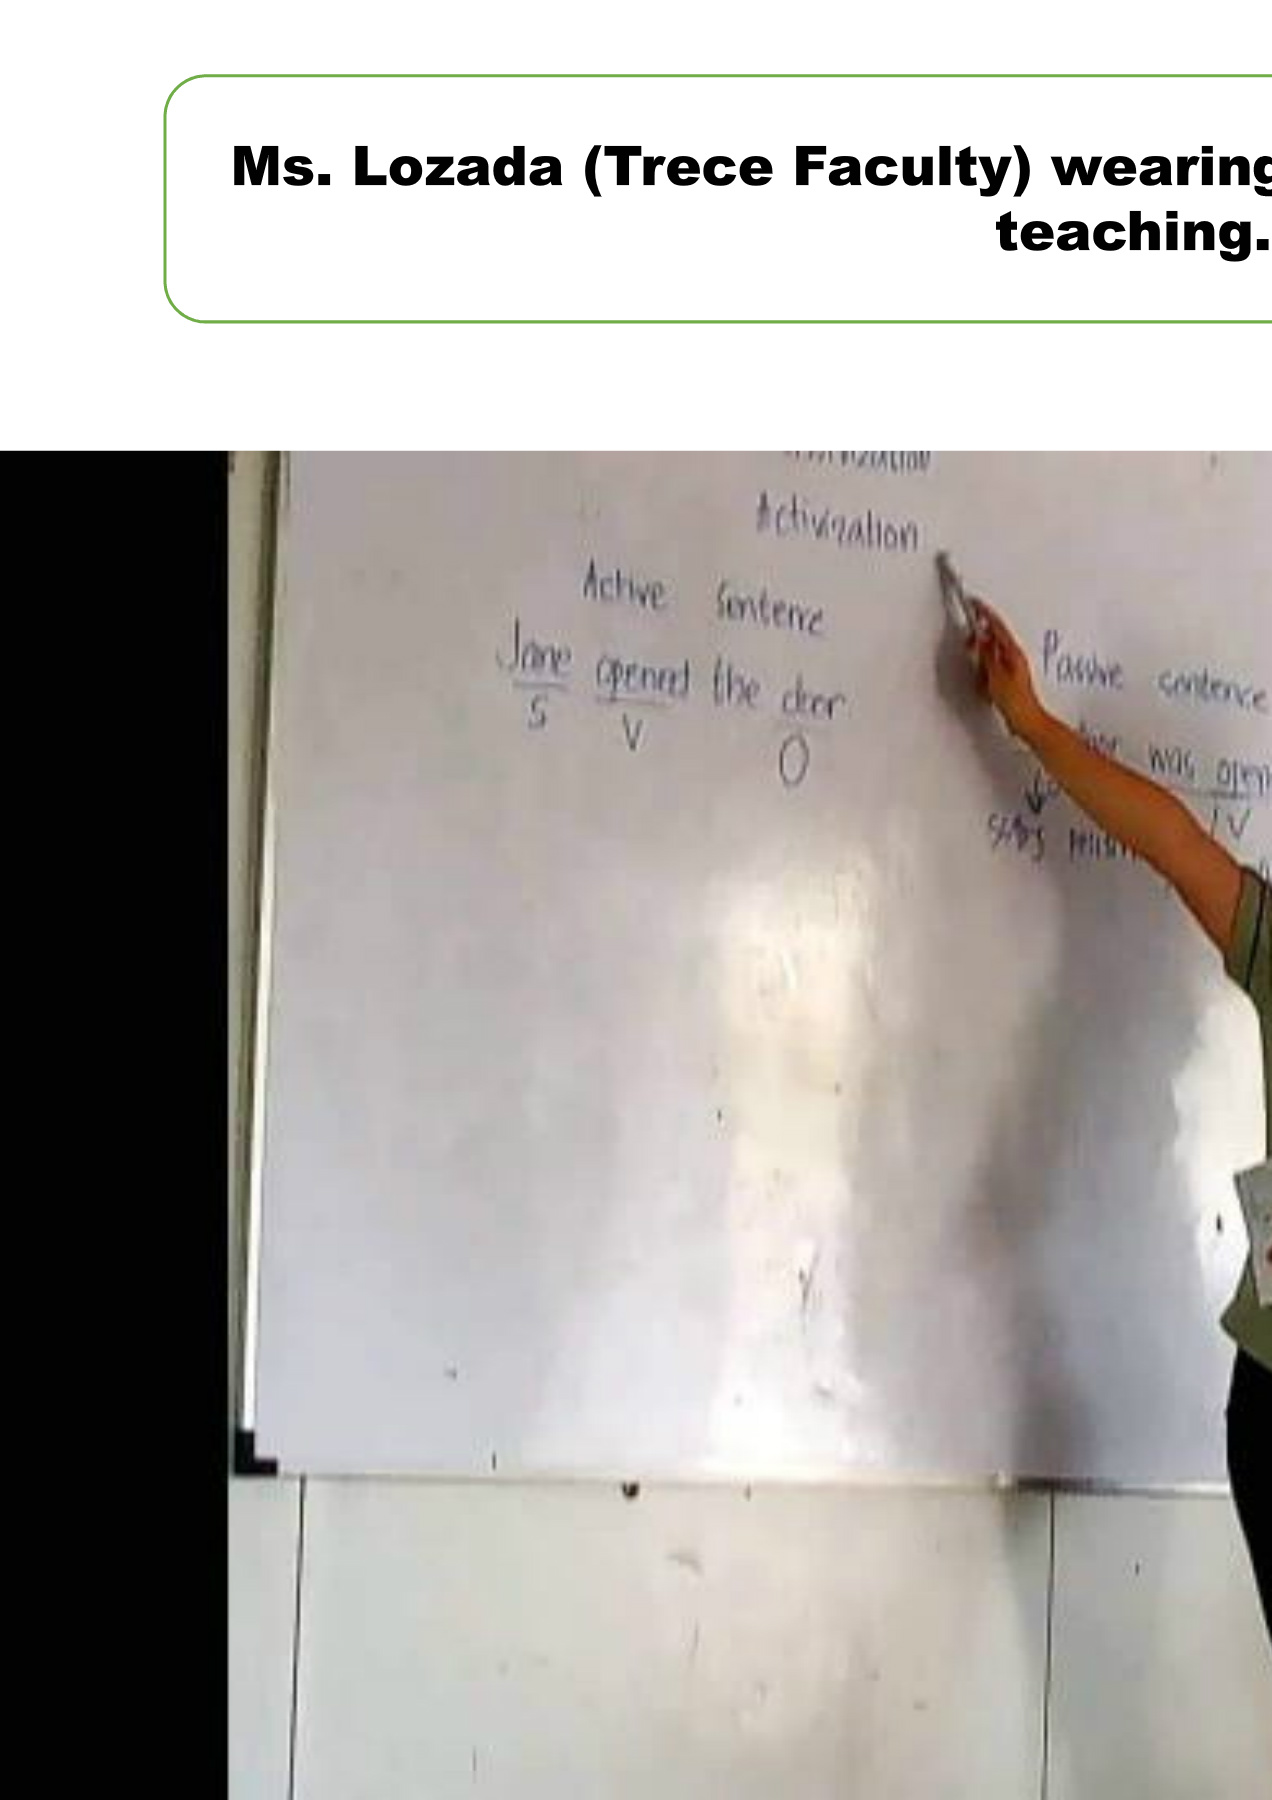 Ms. Lozada (Trece Faculty) wearing
teaching.
Activization
Active Sentence
Jane opened the door
S V O
Passive sentence
was open